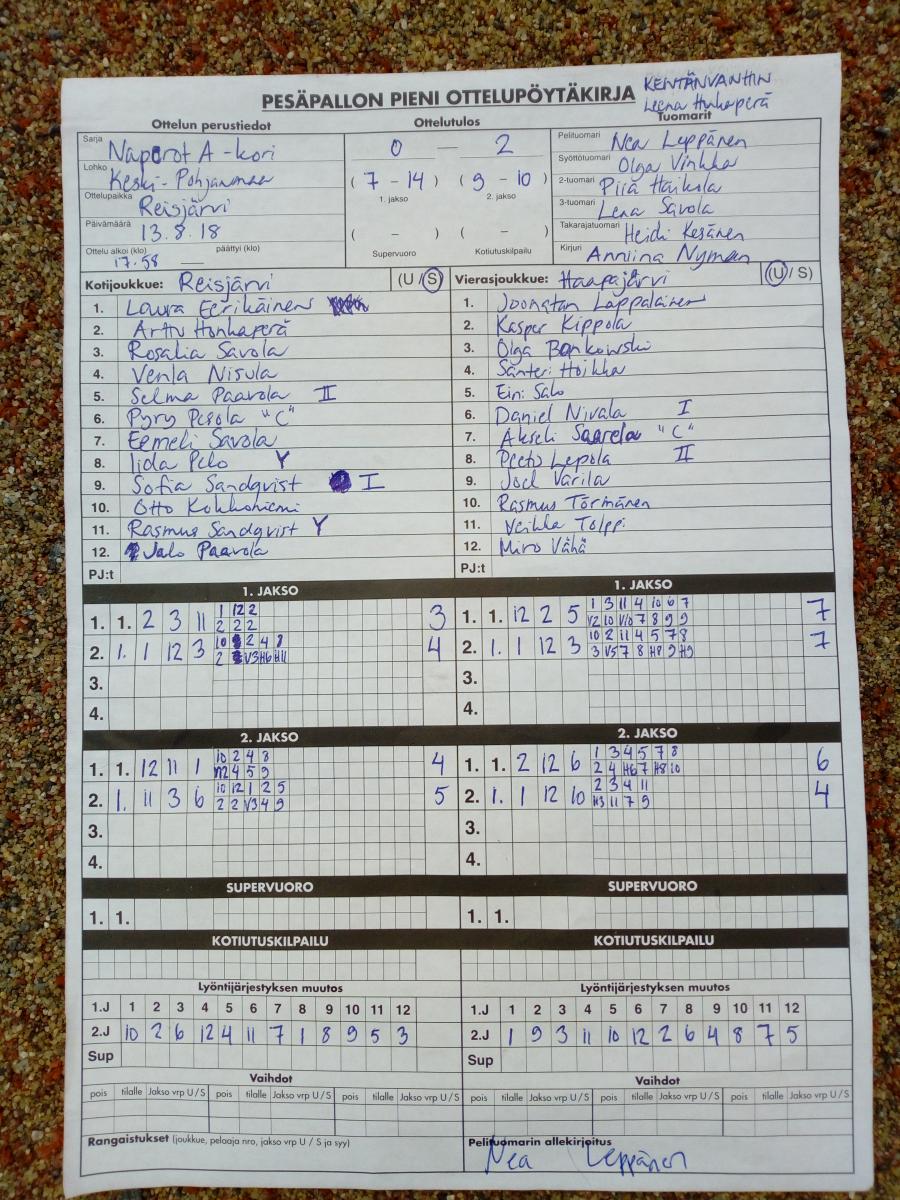 PESÄPALLON PIENI OTTELUPÖYTÄKIRJA
KENTÄNVANHIN
Leena Honkaperä
Ottelun perustiedot
Ottelutulos
Tuomarit
Sarja Naperot A -kori
Lohko Keski-Pohjanmaa
Ottelupaikka Reisjärvi
Päivämäärä 13.8.18
Ottelu alkoi (klo) päättyi (klo)
17.58 —
0 — 2
( 7 - 14 ) ( 9 - 10 )
1. jakso 2. jakso
( - ) ( - )
Supervuoro Kotiutuskilpailu
Pelituomari Nea Leppänen
Syöttötuomari Olga Vinkka
2-tuomari Piia Haikola
3-tuomari Lena Savola
Takarajatuomari Heidi Kesänen
Kirjuri Anniina Nyman
Kotijoukkue: Reisjärvi (U / S)
1. Laura Eerikäinen
2. Arttu Honkaperä
3. Rosalia Savola
4. Venla Nisula
5. Selma Paavola II
6. Pyry Pesola "C"
7. Eemeli Savola
8. Iida Pelo Y
9. Sofia Sandqvist I
10. Otto Kokkoniemi
11. Rasmus Sandqvist Y
12. Jalo Paavola
PJ:t
Vierasjoukkue: Haapajärvi (U / S)
1. Joonatan Lappalainen
2. Kasper Kippola
3. Olga Bonkowski
4. Santeri Hoikka
5. Eini Salo
6. Daniel Nivala I
7. Akseli Saarela "C"
8. Peetu Lepola II
9. Joel Varila
10. Rasmus Törmänen
11. Veikka Tolppi
12. Miro Vähä
1. JAKSO
1. 1. 2 3 11 1 12 2 3
2 2 2
2. 1. 1 12 3 10 2 4 8 4
2 V3 H6 H11
3.
4.
1. JAKSO
1. 1. 12 2 5 1 3 11 4 10 6 7 7
V2 10 V10 7 8 9 9
2. 1. 1 12 3 10 2 11 4 5 7 8 7
3 V5 7 8 H8 9 H9
3.
4.
2. JAKSO
1. 1. 12 11 1 10 2 4 8 4
4 5 9
2. 1. 11 3 6 10 12 1 2 5 5
2 2 V3 4 9
3.
4.
2. JAKSO
1. 1. 2 12 6 1 3 4 5 7 8 6
2 4 H6 7 H8 10
2. 1. 1 12 10 2 3 4 11 4
H3 11 7 9
3.
4.
SUPERVUORO
1. 1.
SUPERVUORO
1. 1.
KOTIUTUSKILPAILU
KOTIUTUSKILPAILU
Lyöntijärjestyksen muutos
1.J 1 2 3 4 5 6 7 8 9 10 11 12
2.J 10 2 6 12 4 11 7 1 8 9 5 3
Sup
Lyöntijärjestyksen muutos
1.J 1 2 3 4 5 6 7 8 9 10 11 12
2.J 1 9 3 11 10 12 2 6 4 8 7 5
Sup
Vaihdot
pois tilalle Jakso vrp U / S pois tilalle Jakso vrp U / S pois tilalle Jakso vrp U / S
Vaihdot
pois tilalle Jakso vrp U / S pois tilalle Jakso vrp U / S pois tilalle Jakso vrp U / S
Rangaistukset (joukkue, pelaaja nro, jakso vrp U / S ja syy)
Pelituomarin allekirjoitus
Nea Leppänen